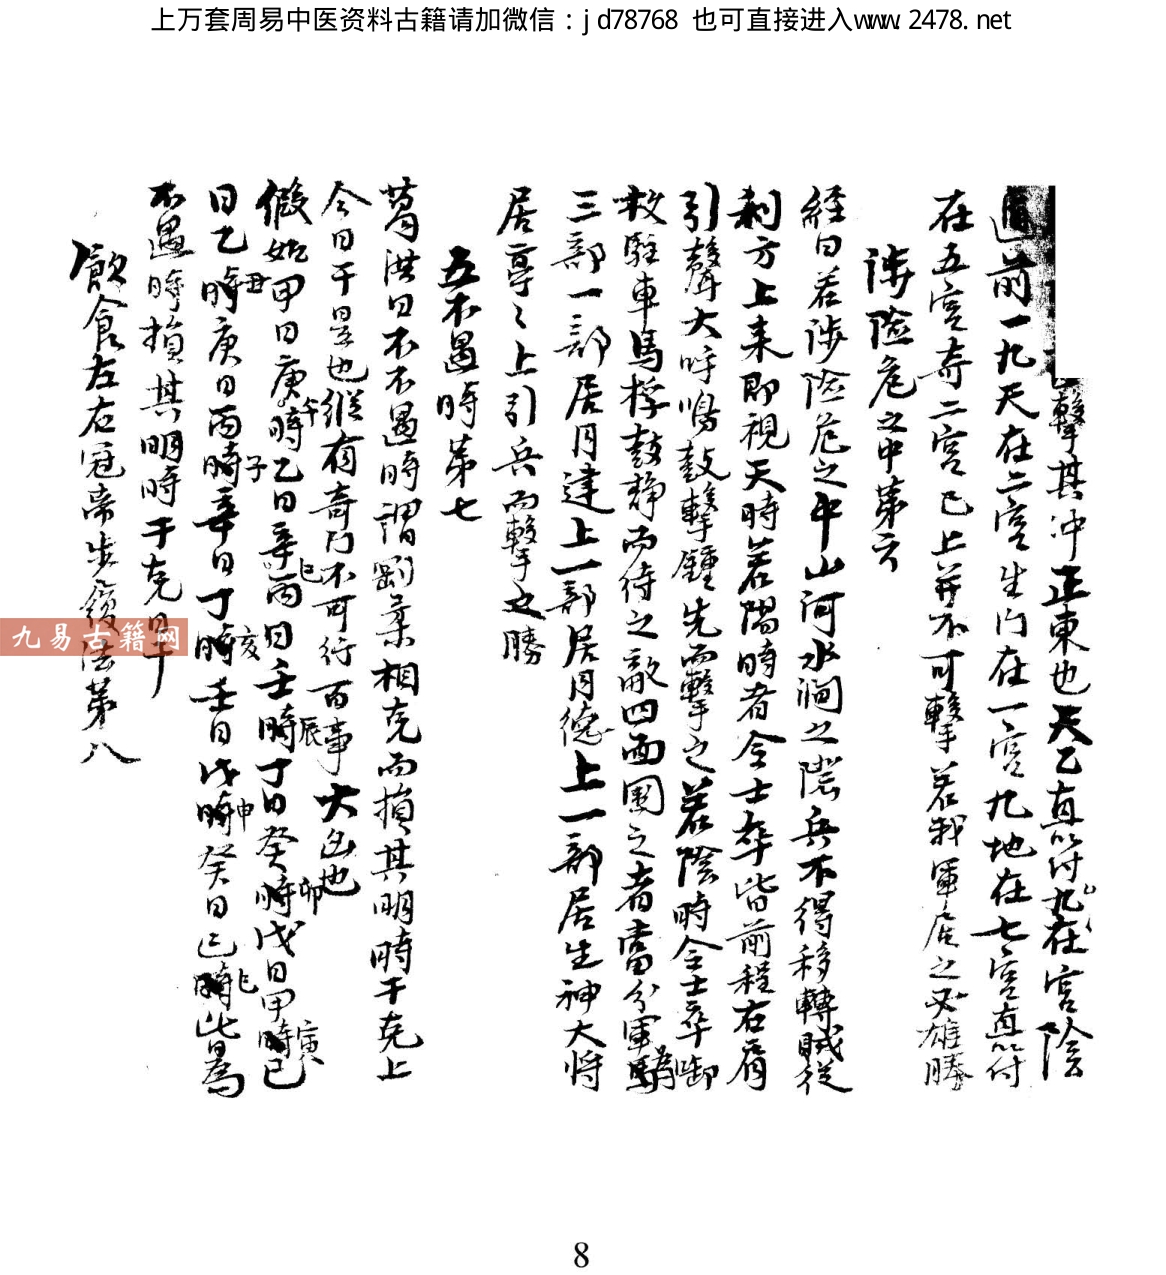 上万套周易中医资料古籍请加微信：jd78768 也可直接进入www.2478.net
擊其冲正東也天乙直符九在宫陰
遁前一九天在二宫生门在一宫九地在七宫直符
在五宫奇二宫已上并不可擊若我軍居之必雄勝
涉險危之中第六
經曰若涉險危之中山河水涧之隈兵不得移轉賊従
刺方上来即視天時若陽時者令士卒皆前程右肩
引聲大呼鳴鼓擊鍾先而擊之若陰時令士卒啣
枚駐車馬桴鼓静而待之敵四面圍之者當分軍為
三部一部居月建上一部居月德上一部居生神大将
居亭亭上引兵而擊之勝
五不遇時第七
葛洪曰不不遇時謂剛柔相克而損其明時干克上
今日干是也縱有奇门不可行百事大凶也
假如甲日庚午時乙日辛巳丙日壬辰時丁日癸卯時戊日甲寅時己
日乙丑時庚日丙子時辛日丁亥時壬日戊申時癸日己巳時此皆為
不遇時損其明時干克日干
飲食左右冠帯步履法第八
九易古籍网
8